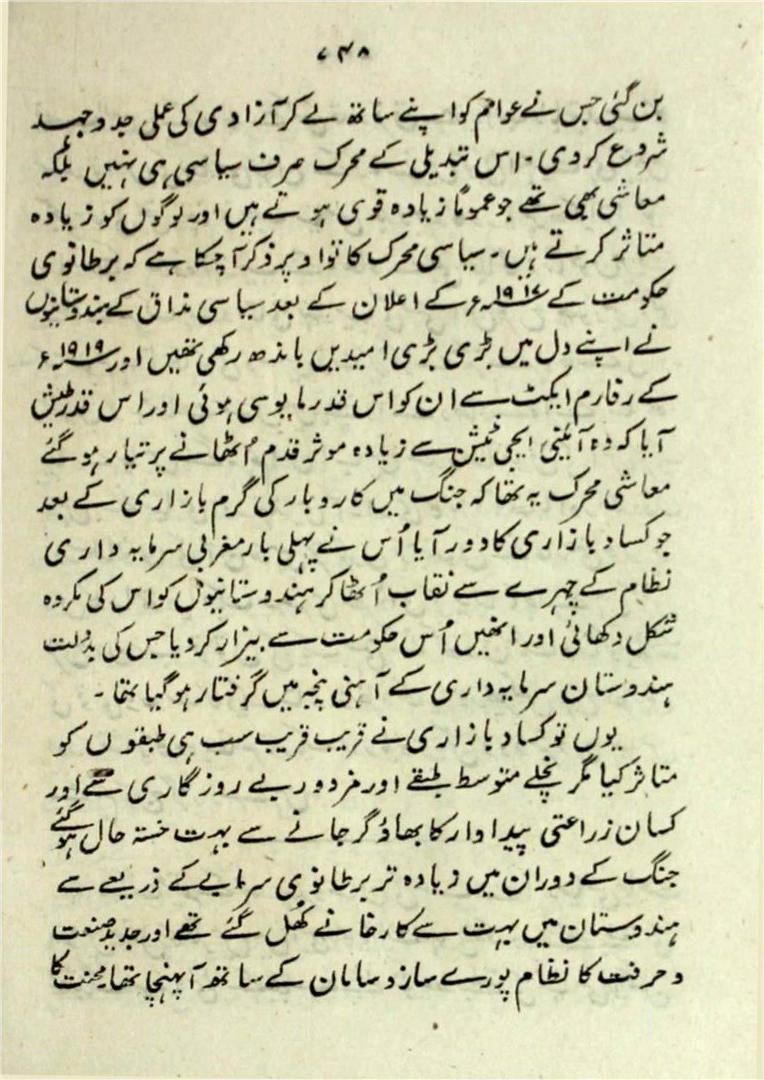 ۷۴۸
بن گئی جس نے عوام کو اپنے ساتھ لے کر آزادی کی عملی جدوجہد
شروع کر دی ۔ اس تبدیلی کے محرک صرف سیاسی ہی نہیں بلکہ
معاشی بھی تھے جو عموماً زیادہ قوی ہوتے ہیں اور لوگوں کو زیادہ
متاثر کرتے ہیں ۔ سیاسی محرک کا تو اوپر ذکر آ چکا ہے کہ برطانوی
حکومت کے ۱۹۱۷ء کے اعلان کے بعد سیاسی مذاق کے ہندوستانیوں
نے اپنے دل میں بڑی بڑی امیدیں باندھ رکھی تھیں اور ۱۹۱۹ء
کے رفارم ایکٹ سے ان کو اس قدر مایوسی ہوئی اور اس قدر طیش
آیا کہ وہ آئینی ایجی ٹیشن سے زیادہ موثر قدم اُٹھانے پر تیار ہو گئے
معاشی محرک یہ تھا کہ جنگ میں کاروبار کی گرم بازاری کے بعد
جو کساد بازاری کا دور آیا اُس نے پہلی بار مغربی سرمایہ داری
نظام کے چہرے سے نقاب اُٹھا کر ہندوستانیوں کو اس کی مکروہ
شکل دکھائی اور انھیں اُس حکومت سے بیزار کر دیا جس کی بدولت
ہندوستان سرمایہ داری کے آہنی پنجہ میں گرفتار ہو گیا تھا ۔
یوں تو کساد بازاری نے قریب قریب سب ہی طبقوں کو
متاثر کیا مگر نچلے متوسط طبقے اور مزدور بے روزگاری سے اور
کسان زراعتی پیداوار کا بھاؤ گر جانے سے بہت خستہ حال ہو گئے
جنگ کے دوران میں زیادہ تر برطانوی سرمایے کے ذریعے سے
ہندوستان میں بہت سے کارخانے کھُل گئے تھے اور جدید صنعت
و حرفت کا نظام پورے ساز و سامان کے ساتھ آ پہنچا تھا محنت کا